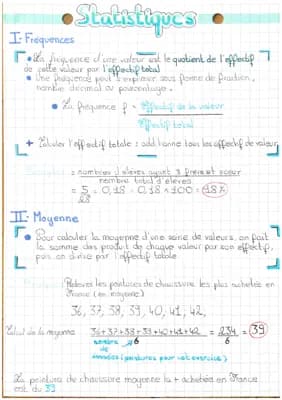 Statistiques
I: Fréquences
• La fréquence d'une valeur est le quotient de l'effectif
de cette valeur par l'effectif total
• Une fréquence peut s'exprimer sous forme de fraction,
nombre décimal ou pourcentage.
• La fréquence f = Effectif de la valeur
Effectif total
+ Calculer l'effectif totale : additionne tous les effectif de valeur
= nombres d'élèves ayant 3 frères et soeur
nombre total d'élèves
= 5 = 0,18 = 0,18 × 100 = 18%
28
II: Moyenne
• Pour calculer la moyenne d'une série de valeurs, on fait
la somme des produit de chaque valeur par son effectif,
puis on divise par l'effectif totale.
Relever les pointures de chaussure les plus achetée en
France (en moyenne)
36, 37, 38, 39, 40, 41, 42,
Calcul de la moyenne 36+37+38+39+40+41+42 = 234 = 39
nombre de 6 6
données (pointures pour cet exercice)
La pointure de chaussure moyenne la + achetée en France
est du 39